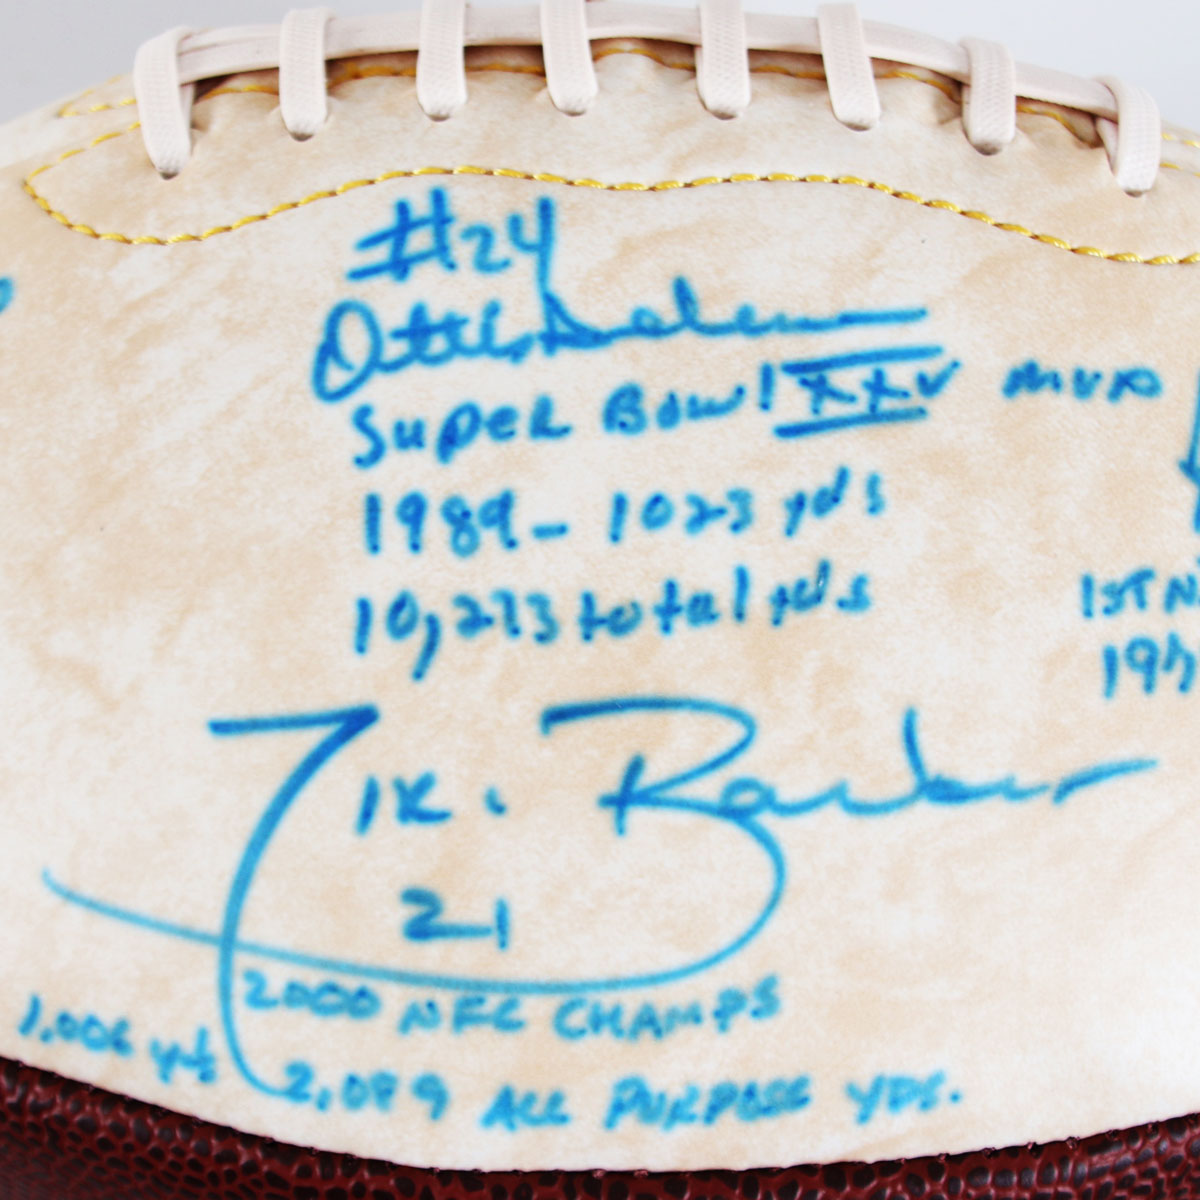 #24
Ottis Anderson
SUPER BOWl XXV MVP
1989 - 1023 yds
10,273 total yds
1ST
Tiki Barber
21
2000 NFC CHAMPS
1,006 yds
2,089 ALL PURPOSE YDS.